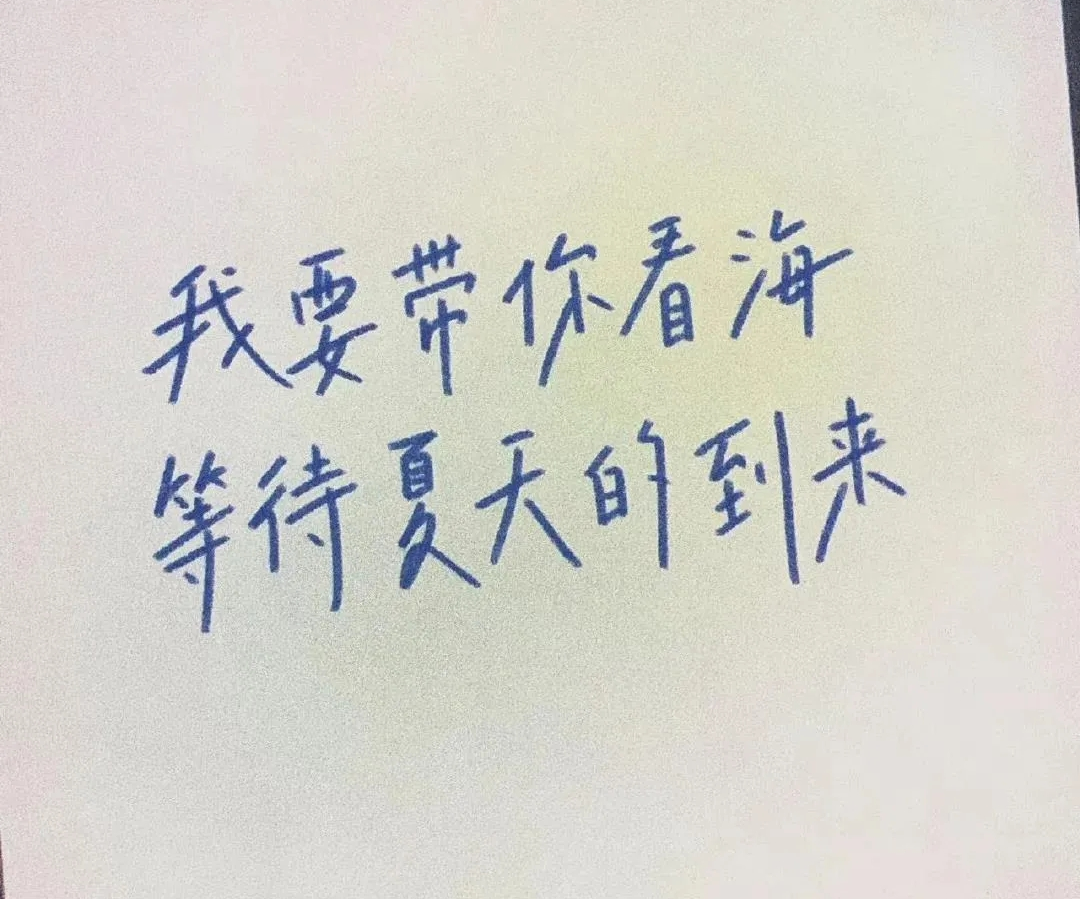 我要带你看海
等待夏天的到来